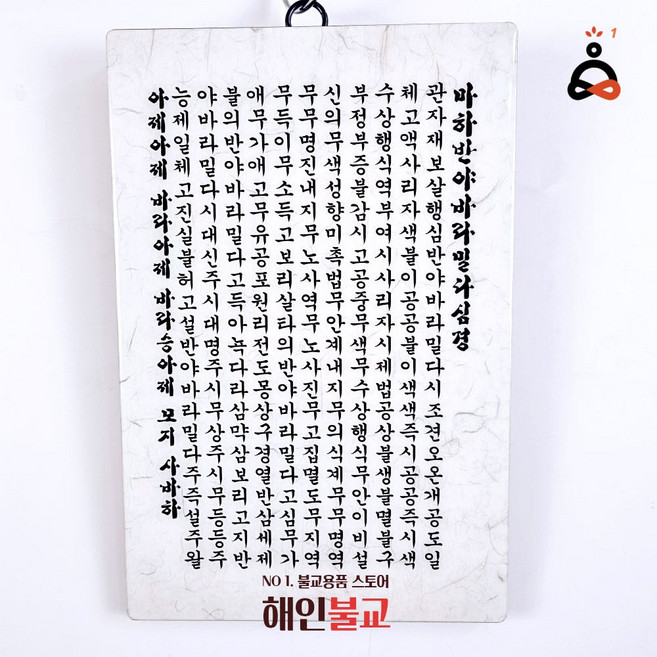 마하반야바라밀다심경
관자재보살행심반야바라밀다시 조견오온개공도일
체고액사리자색불이공공불이색색즉시공공즉시색
수상행식역부여시사리자시제법공상불생불멸불구
부정부증불감시고공중무색무수상행식무안이비설
신의무색성향미촉법무안계내지무의식계무무명역
무무명진내지무노사역무노사진무고집멸도무지역
무득이무소득고보리살타의반야바라밀다고심무가
애무가애고무유공포원리전도몽상구경열반삼세제
불의반야바라밀다고득아녹다라삼먁삼보리고지반
야바라밀다시대신주시대명주시무상주시무등등주
능제일체고진실불허고설반야바라밀다주즉설주왈
아제아제 바라아제 바라승아제 모지 사바하
NO 1. 불교용품 스토어
해인불교
1